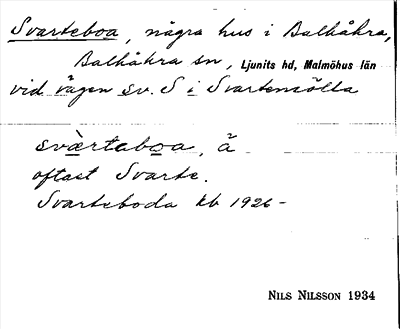 Svarteboa, några hus i Balkåkra,
Balkåkra sn, Ljunits hd, Malmöhus län
vid vägen sv. S i Svartemölla
svàrteboa, ã
oftast Svarte.
Svarteboda kb 1926-
NILS NILSSON 1934